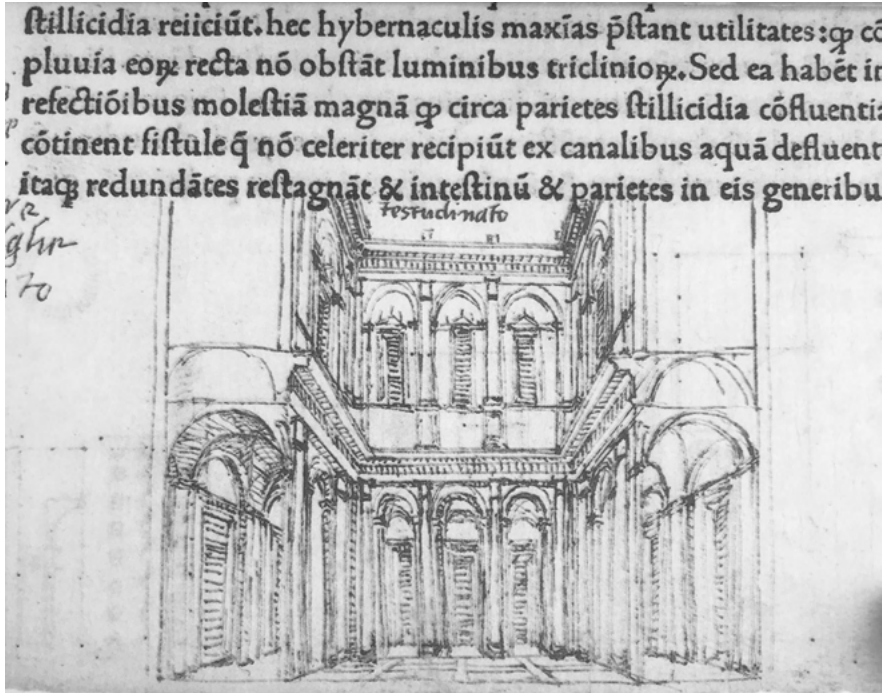 ſtillicidia reiiciūt. hec hybernaculis maxīas p̄ſtant utilitates: ꝙ cō
pluuia eoꝝ recta nō obſtāt luminibus tricliniorꝝ. Sed ea habēt in
refectiōibus moleſtiā magnā ꝙ circa parietes ſtillicidia cōfluentia
cōtinent fiſtule q̄ nō celeriter recipiūt ex canalibus aquā defluent
itaqꝫ redundātes reſtagnāt & inteſtinū & parietes in eis generibu
testudinato
to